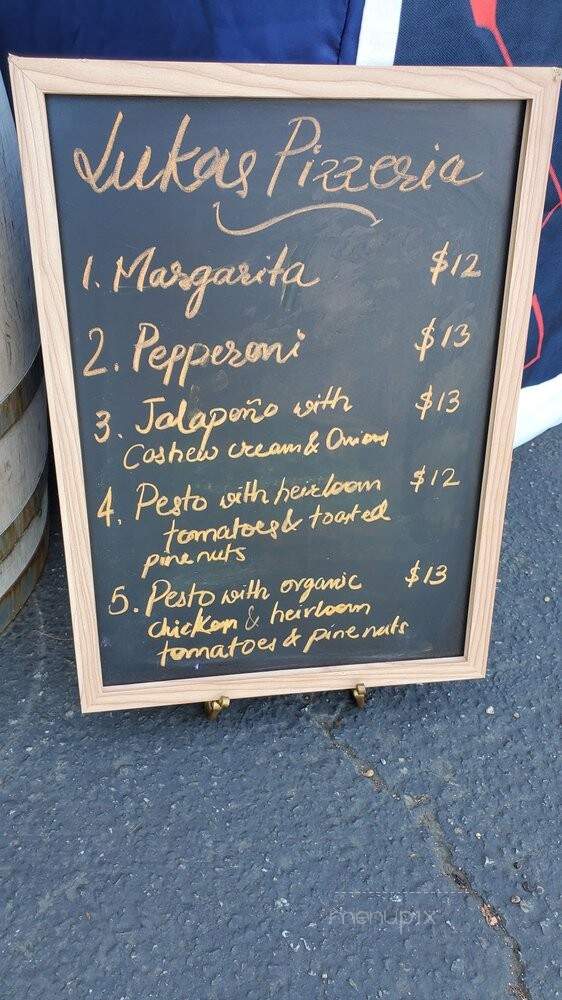 Lukas Pizzeria
1. Margarita $12
2. Pepperoni $13
3. Jalapeño with $13
Cashew cream & Onions
4. Pesto with heirloom $12
tomatoes & toasted
pine nuts
5. Pesto with organic $13
chicken & heirloom
tomatoes & pine nuts
menupix